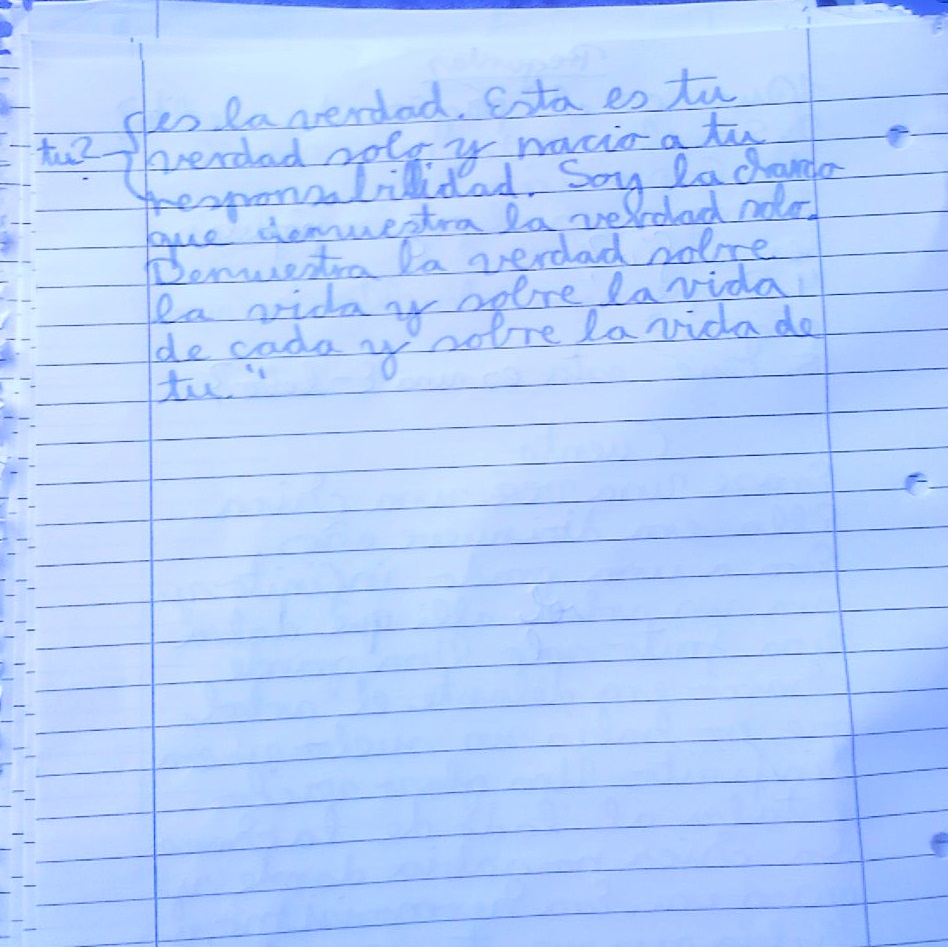 es la verdad. Esta es tu
tu? verdad solo y nacio a tu
responsabilidad. Soy la charco
que demuestra la verdad solo.
Demuestra la verdad sobre
la vida y sobre la vida
de cada y sobre la vida de
tu."